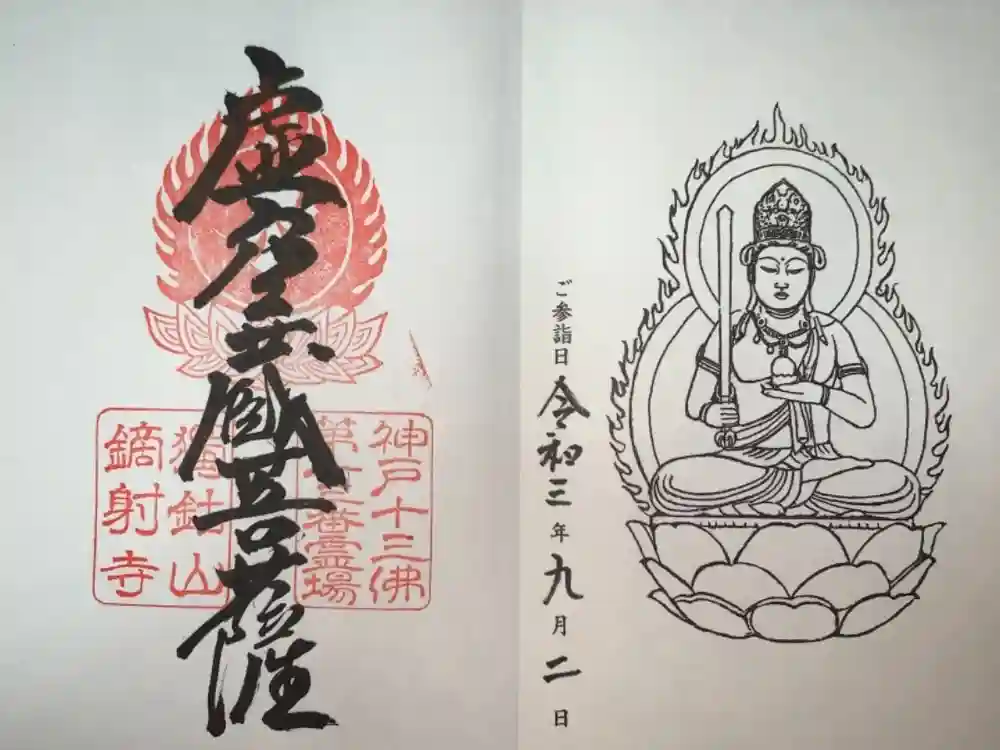 ご参詣日 令和三年九月二日
虚空蔵菩薩
神戸十三佛
第十三番霊場
獨鈷山
鏑射寺